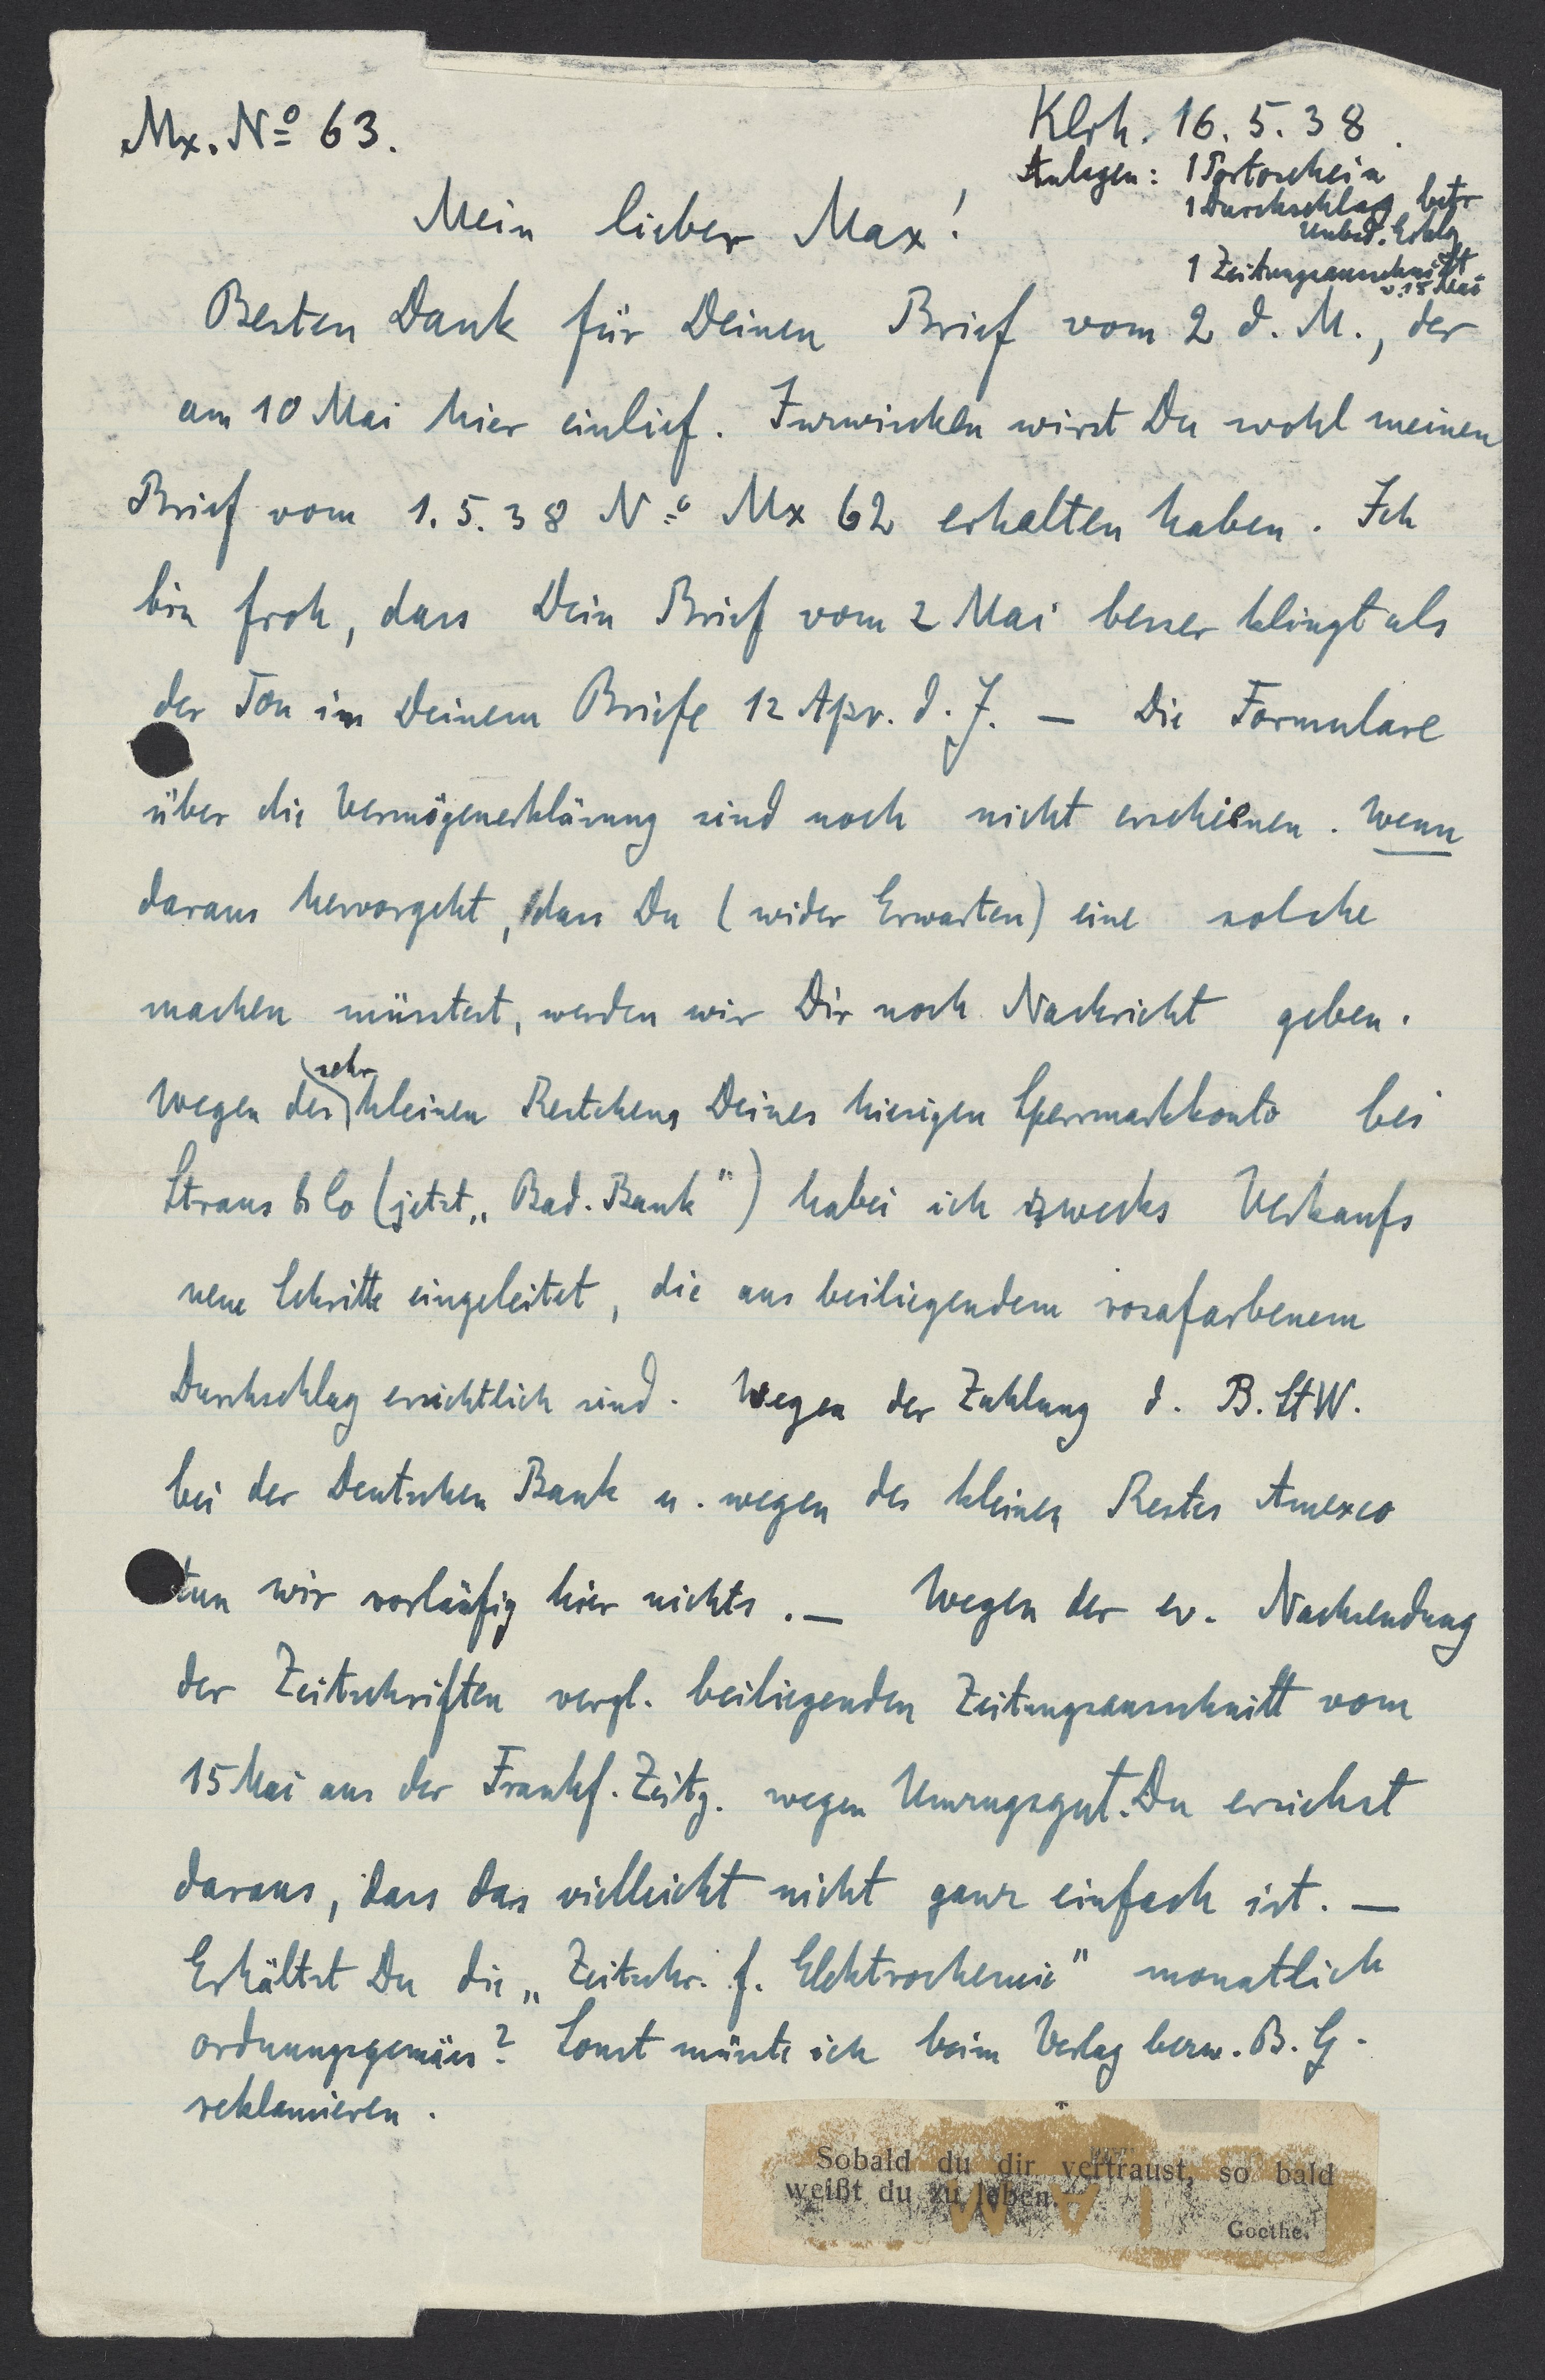 Mx. Nº 63.
Klrh. 16.5.38.
Anlagen: 1 Portoschein
1 Durchschlag betr
Unbed. Erklg
1 Zeitungsausschnitt
v. 15 Mai
Mein lieber Max!
Besten Dank für Deinen Brief vom 2 d. M., der
am 10 Mai hier einlief. Inzwischen wirst Du wohl meinen
Brief vom 1.5.38 Nº Mx 62 erhalten haben. Ich
bin froh, dass Dein Brief vom 2 Mai besser klingt als
der Ton in Deinem Briefe 12 Apr. d. J. — Die Formulare
über die Vermögenerklärung sind noch nicht erschienen. Wenn
daraus hervorgeht, dass Du (wider Erwarten) eine solche
machen müsstest, werden wir Dir noch Nachricht geben.
Wegen des sehr kleinen Restchens Deines hiesigen Sperrmarkkonto bei
Straus & Co (jetzt „Bad. Bank") habei ich zwecks Verkaufs
neue Schritte eingeleitet, die aus beiliegendem rosafarbenem
Durchschlag ersichtlich sind. Wegen der Zahlung d. B. StW.
bei der Deutschen Bank u. wegen des kleinen Restes Amexco
tun wir vorläufig hier nichts. — Wegen der ev. Nachsendung
der Zeitschriften vergl. beiliegenden Zeitungsausschnitt vom
15 Mai aus der Frankf. Zeitg. wegen Umzugsgut. Du ersiehst
daraus, dass das vielleicht nicht ganz einfach ist. —
Erhältst Du die „Zeitschr. f. Elektrochemie" monatlich
ordnungsgemäss? Sonst müsste ich beim Verlag bezw. B. G.
reklamieren.
Sobald du dir vertraust, so bald
weißt du zu leben.
Goethe.